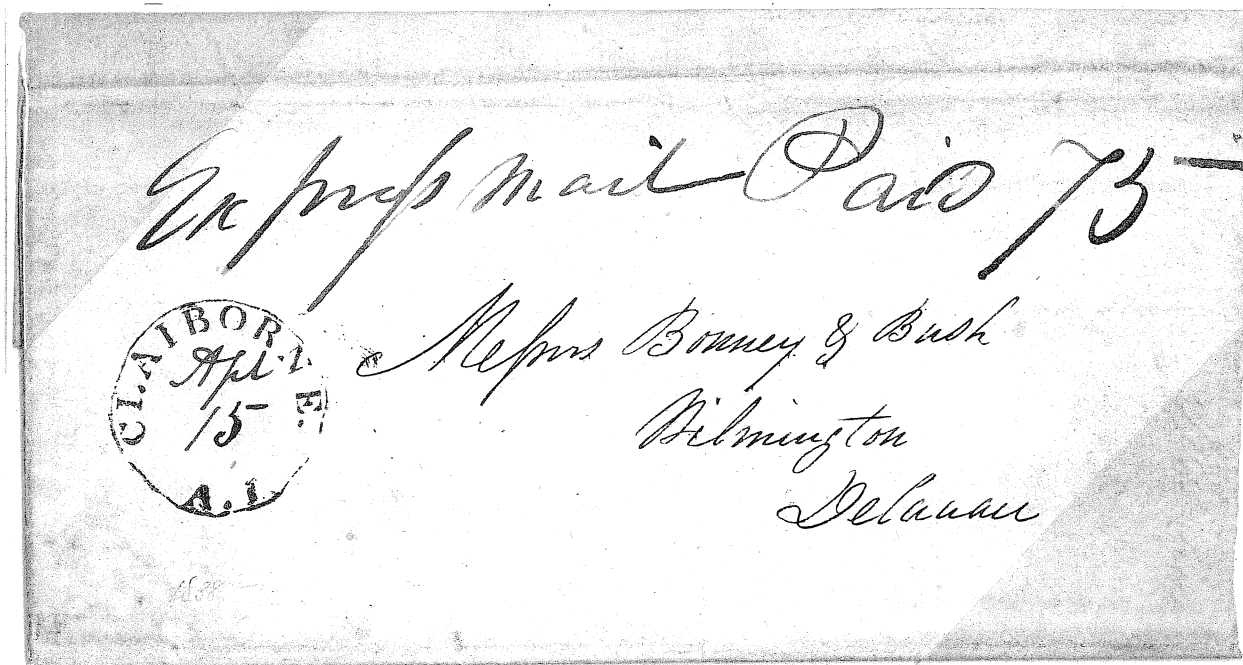 Express mail Paid 75
CLAIBORNE.
Apl
15
Al.
Messrs Bonney & Bush
Wilmington
Delaware